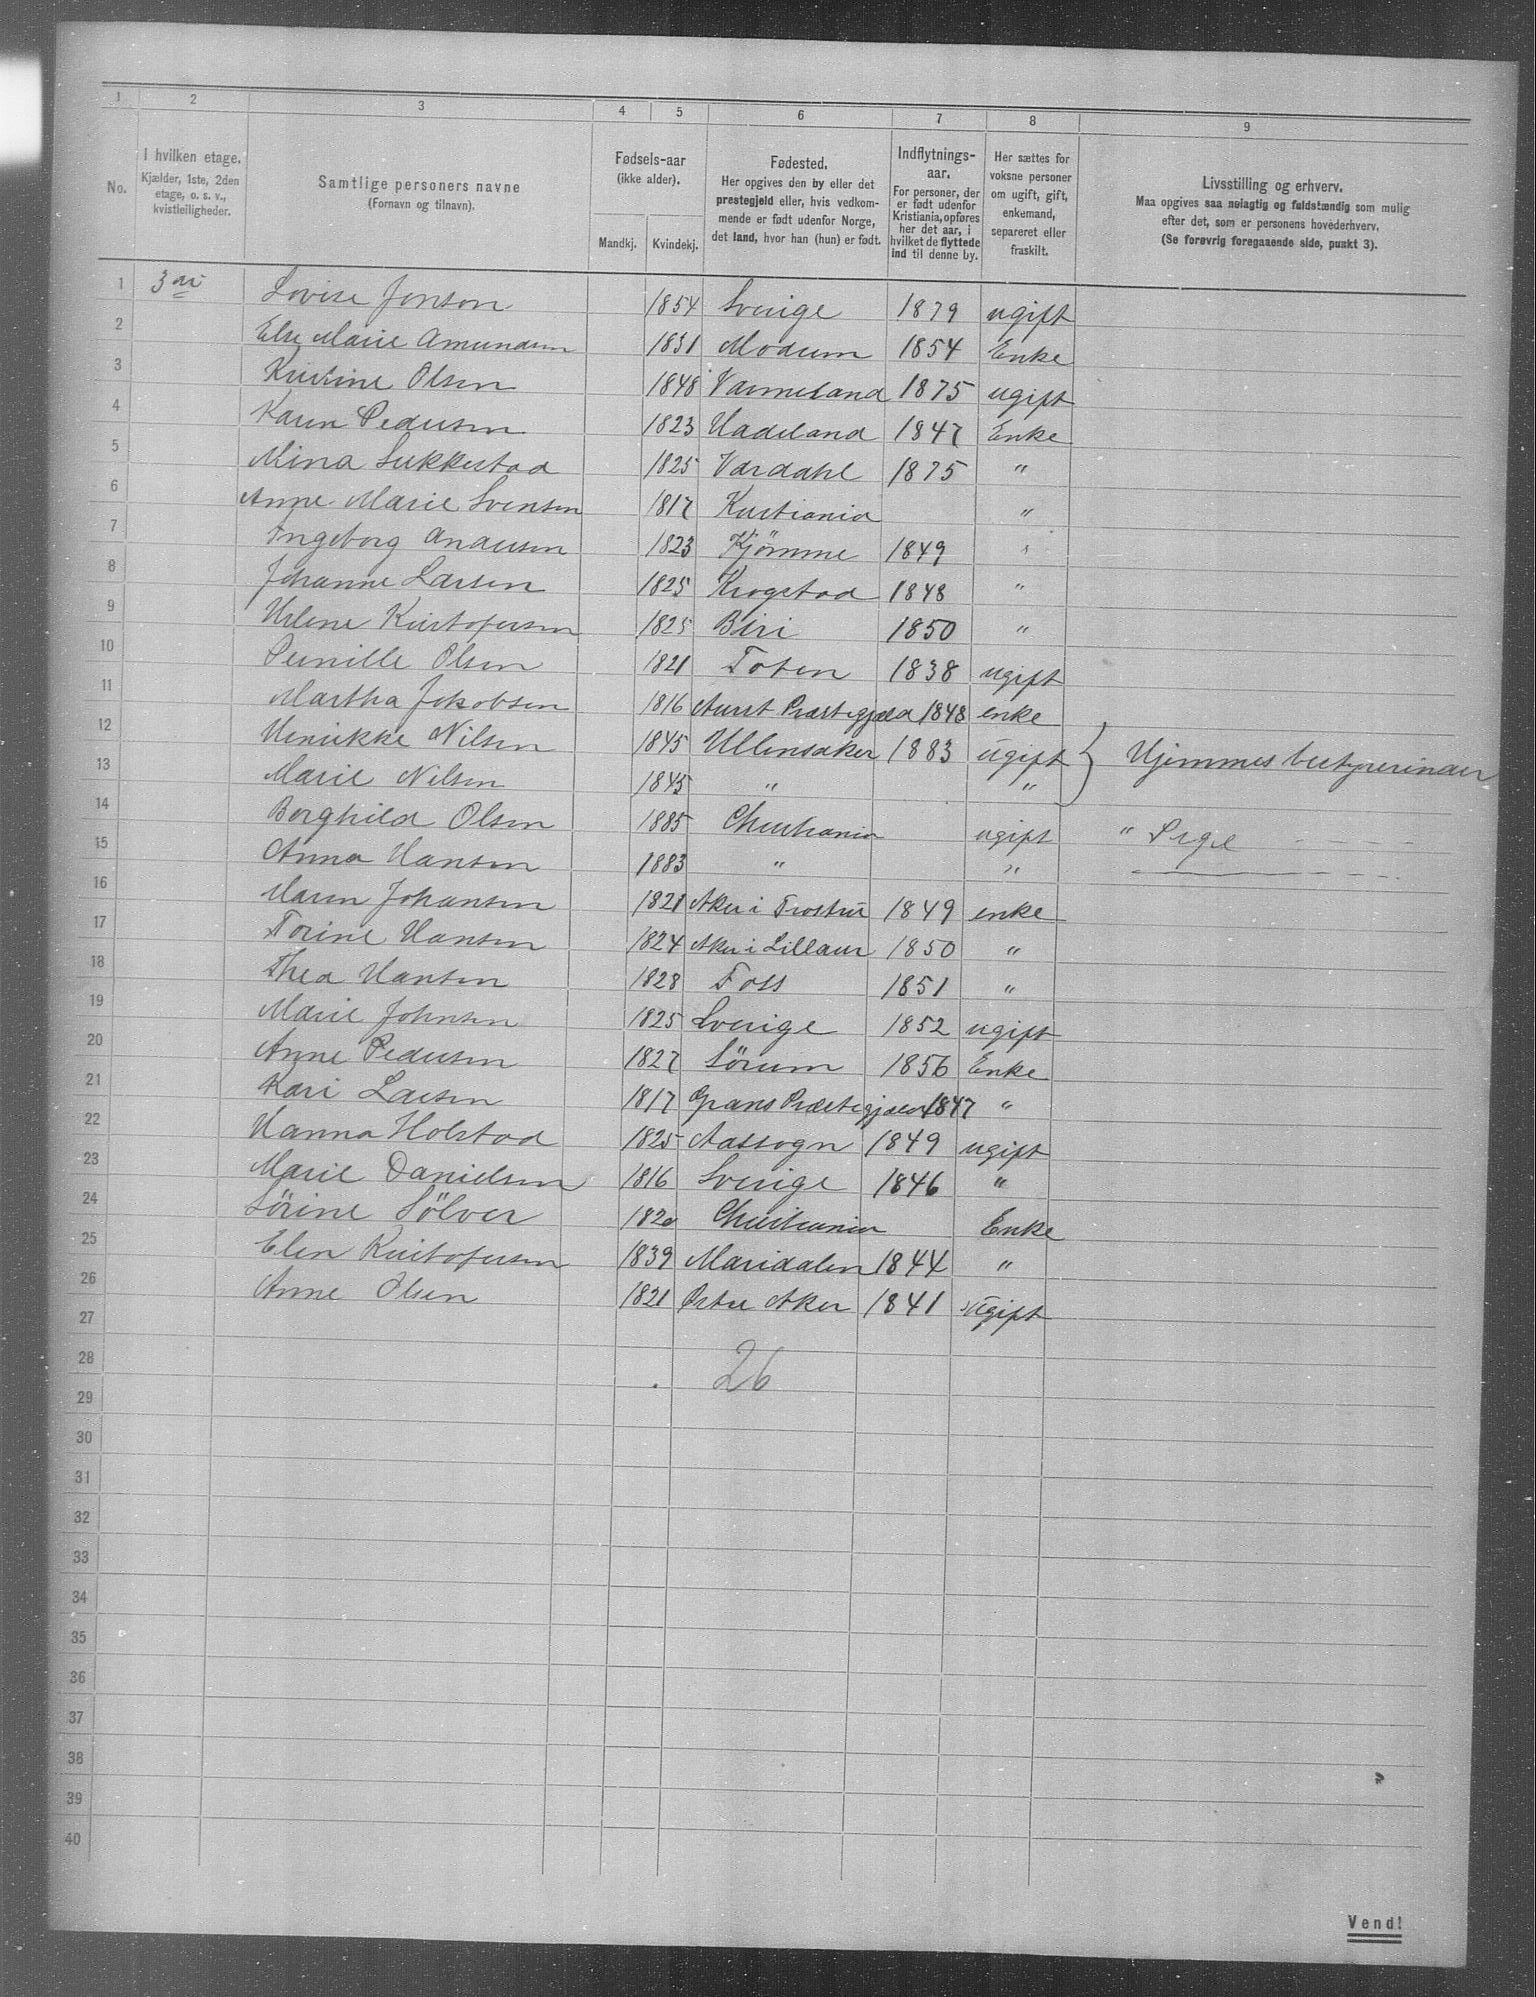 1 2 3 4 5 6 7 8 9
No.
I hvilken etage.
Kjælder, 1ste, 2den
etage, o. s. v.,
kvistleiligheder.
Samtlige personers navne
(Fornavn og tilnavn).
Fødsels-aar
(ikke alder).
Mandkj. Kvindekj.
Fødested.
Her opgives den by eller det
prestegjeld eller, hvis vedkom-
mende er født udenfor Norge,
det land, hvor han (hun) er født.
Indflytnings-
aar.
For personer, der
er født udenfor
Kristiania, opføres
her det aar, i
hvilket de flyttede
ind til denne by.
Her sættes for
voksne personer
om ugift, gift,
enkemand,
separeret eller
fraskilt.
Livsstilling og erhverv.
Maa opgives saa nøiagtig og fuldstændig som mulig
efter det, som er personens hovederhverv.
(Se forøvrig foregaaende side, punkt 3).
1 Lovise Jonson 1854 Sverige 1879 ugift
2 Else Marie Amundsen 1831 Modum 1854 Enke
3 Kristine Olsen 1848 Varmeland 1875 ugift
4 Karen Pedersen 1823 Hadeland 1847 Enke
5 Mina Sukkestad 1825 Vardahl 1875 "
6 Anne Marie Svensen 1817 Kristiania "
7 Ingeborg Andersen 1823 Kjömme 1849 "
8 Johanne Larsen 1825 Krogstad 1848 "
9 Helene Kristofersen 1825 Biri 1850 "
10 Pernille Olsen 1821 Toten 1838 ugift
11 Martha Jakobsen 1816 Aurst Præstegjæld 1848 enke
12 Henrikke Nilsen 1845 Ullensaker 1883 ugift } Hjemmes bestyrerinder
13 Marie Nilsen 1845 " "
14 Borghild Olsen 1885 Christiania ugift " Pige - - - -
15 Anna Hansen 1883 " "
16 Maren Johansen 1821 Aker i 1849 enke
17 Torine Hansen 1824 Aker i 1850 "
18 Thea Hansen 1828 Foss 1851 "
19 Marie Johnsen 1825 Sverige 1852 ugift
20 Anne Pedersen 1827 Sörum 1856 Enke
21 Kari Larsen 1817 Grans Præstegjæld 1847 "
22 Hanna Holstad 1825 Aassogn 1849 ugift
23 Marie Danielsen 1816 Sverige 1846 "
24 Sörine Sölver 1820 Christiania Enke
25 Elen Kristofersen 1839 Maridalen 1844 "
26 Anne Olsen 1821 Östre Aker 1841 ugift
27
28 26
29
30
31
32
33
34
35
36
37
38
39
40
Vend!